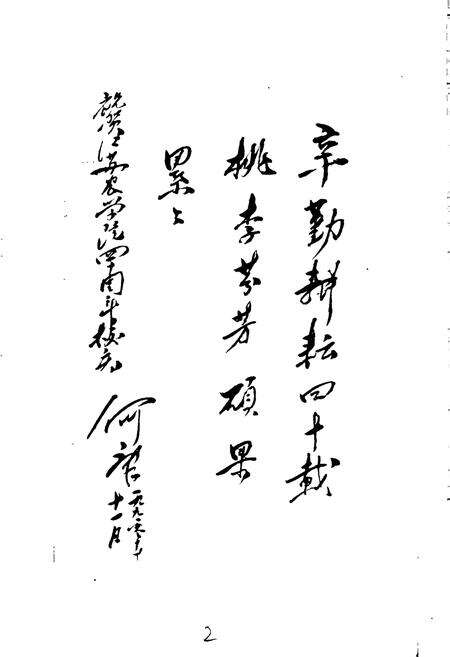 辛勤耕耘四十載
桃李芬芳碩果
累々
祝贺江苏农学院四十周年校庆
何康
一九九二年
十一月
2